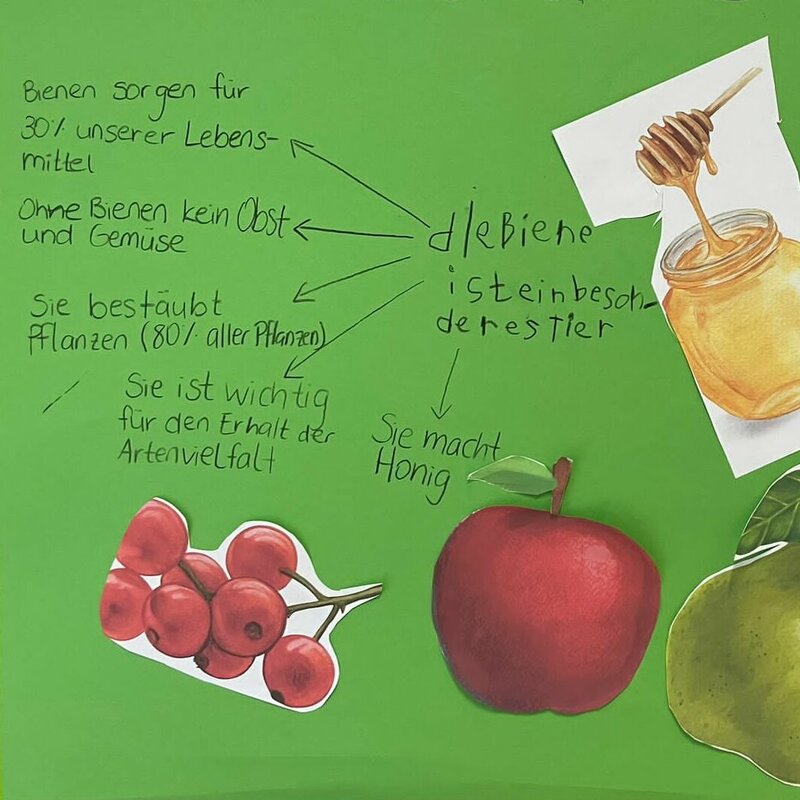 Bienen sorgen für
30% unserer Lebens-
mittel
Ohne Bienen kein Obst
und Gemüse
Sie bestäubt
Pflanzen (80% aller Pflanzen)
Sie ist wichtig
für den Erhalt der
Artenvielfalt
dieBiene
isteinbeson-
derestier
Sie macht
Honig